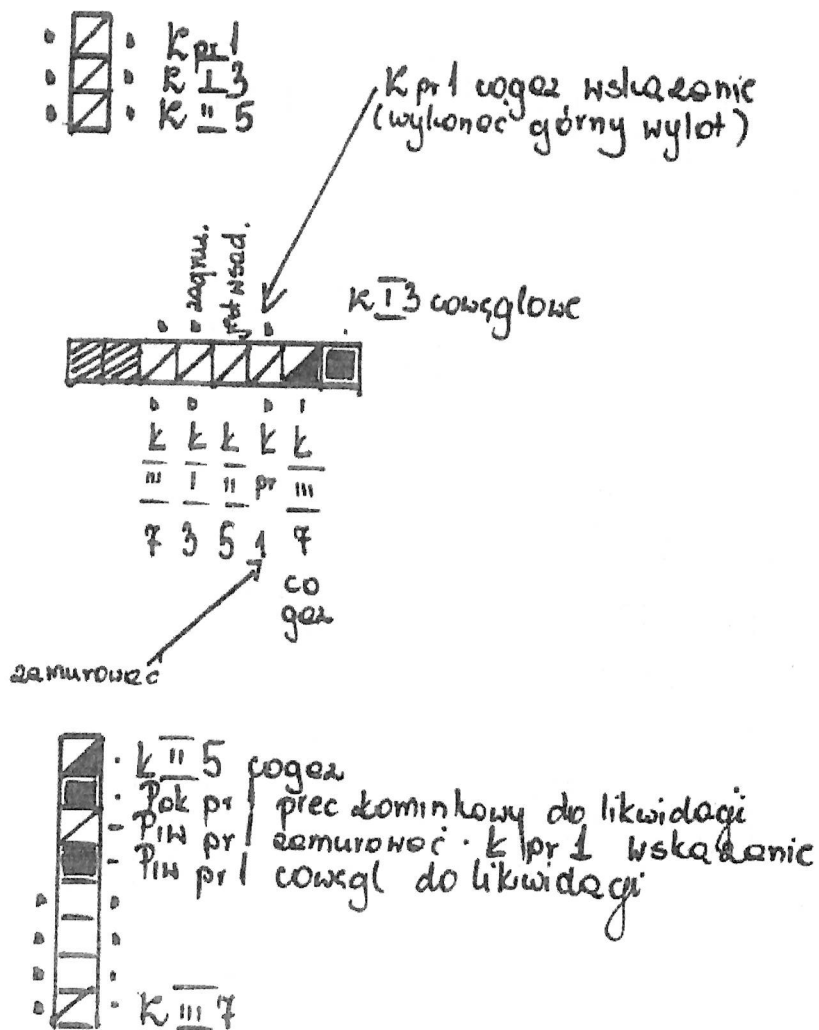 Ł pr 1
K I 3
K II 5
K pr 1 cogaz wskazanie
(wykonać górny wylot)
jest wsad.
K I 3 cowęglowe
Ł Ł Ł Ł Ł
III I II pr III
7 3 5 1 7
co
gaz
zamurować
Ł II 5 cogaz
Pok pr 1 piec kominkowy do likwidacji
Piw pr 1 zamurować · Ł pr 1 wskazanie
Piw pr 1 cowęgl do likwidacji
K III 7